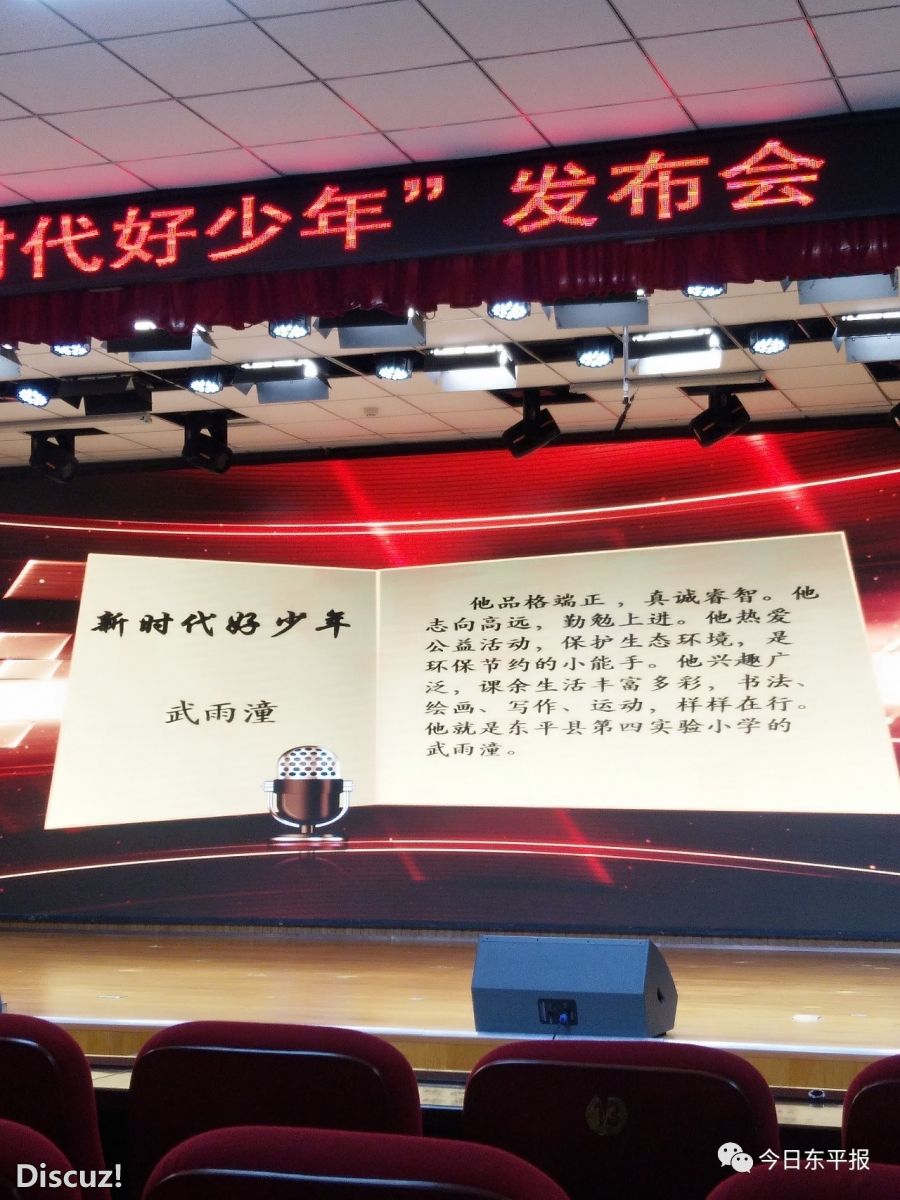 时代好少年”发布会
新时代好少年
武雨潼
他品格端正，真诚睿智。他
志向高远，勤勉上进。他热爱
公益活动，保护生态环境，是
环保节约的小能手。他兴趣广
泛，课余生活丰富多彩，书法、
绘画、写作、运动，样样在行。
他就是东平县第四实验小学的
武雨潼。
Discuz!
今日东平报